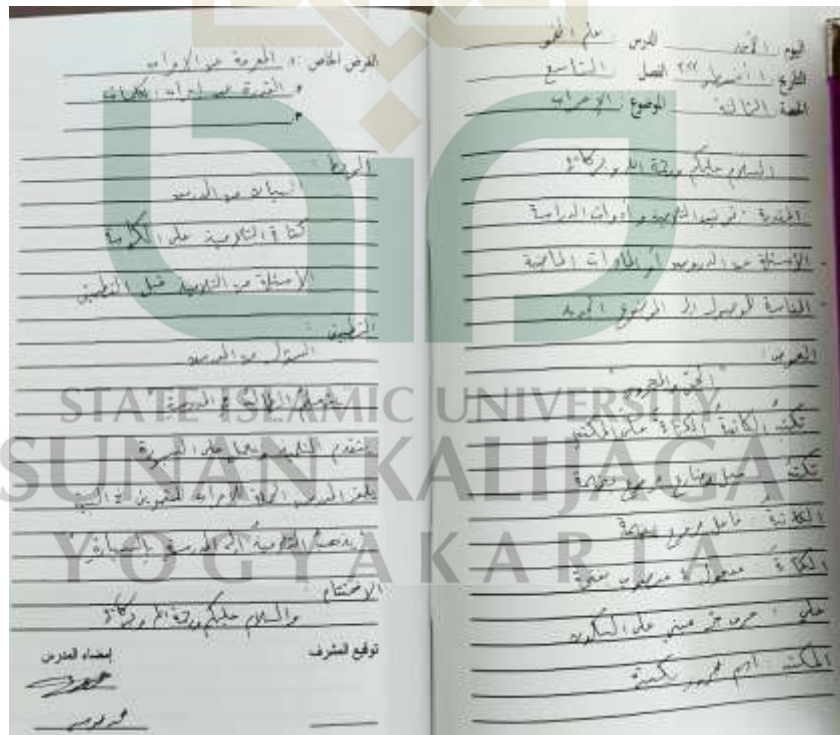 اليوم : الأحد الدرس : علم النحو
التاريخ : ١ أغسطس ٢٠٢٢ الفصل : التاسع
الحصة : الثالثة الموضوع : الإعراب
السلام عليكم ورحمة الله وبركاته
المقدمة : ترتيب التلاميذ وأدوات الدراسة
- الأسئلة عن الدروس أو المادات الماضية
- المناسبة للوصول إلى الموضوع الجديد
العرض :
تكتب الكاتبة الكتابة على المكتب
تكتب : فعل مضارع مرفوع بضمة
الكاتبة : فاعل مرفوع بضمة
الكتابة : مفعول به منصوب بفتحة
على : حرف جر مبني على السكون
المكتب : اسم مجرور بكسرة
الغرض الخاص : ١. المعرفة عن الإعراب
٢. القدرة على إعراب الكلمات
٣.
الربط :
البيان من المدرس
كتابة التلاميذ على الكراسة
الأسئلة من التلاميذ قبل التطبيق
التطبيق :
السؤال من المدرس
يتعلم الطالب في المدرسة
يتقدم التلاميذ على السبورة
يلقي المدرس الجملة للإعراب للتمرين في البيت
"يذهب التلاميذ إلى المدرسة بالسيارة"
الاختتام :
والسلام عليكم ورحمة الله وبركاته
توقيع المشرف إمضاء المدرس
STATE ISLAMIC UNIVERSITY
SUNAN KALIJAGA
YOGYAKARTA